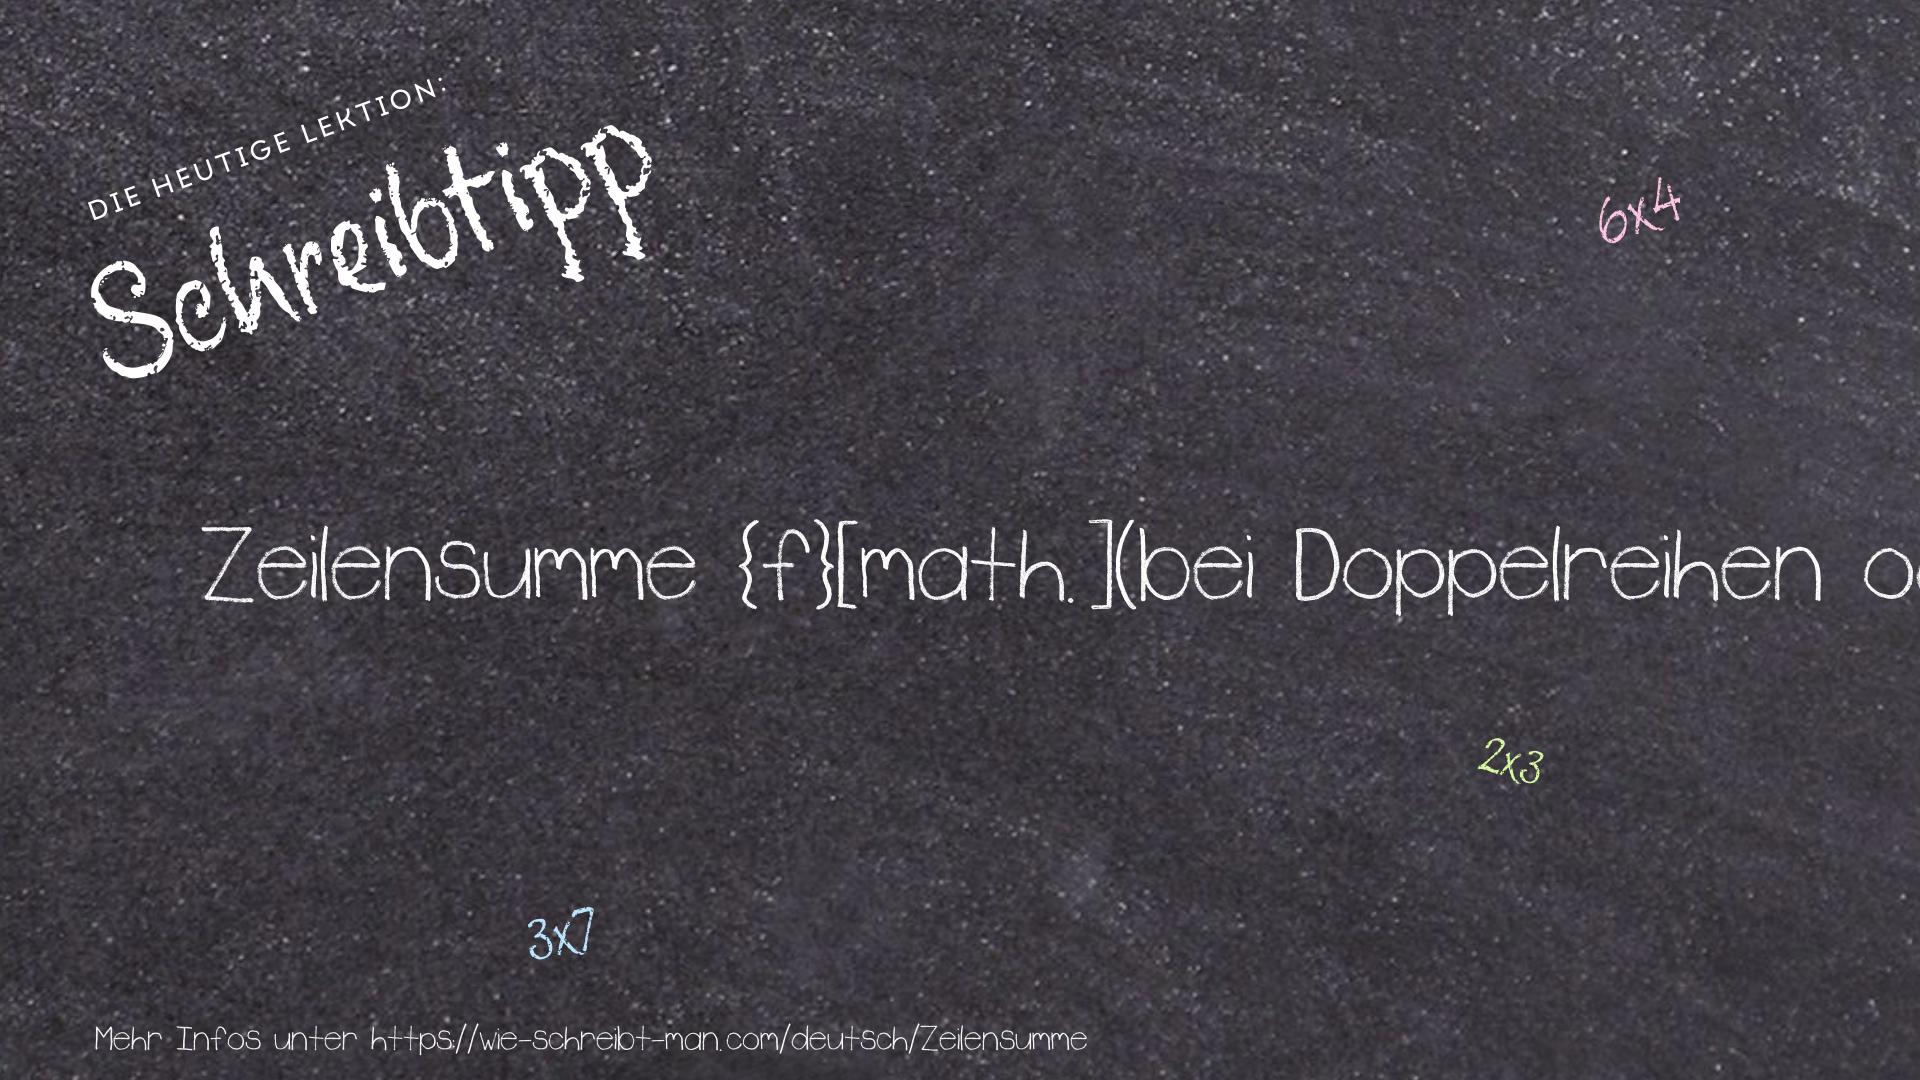 DIE HEUTIGE LEKTION:
Schreibtipp
6x4
Zeilensumme {f}[math.](bei Doppelreihen
2x3
3x7
Mehr Infos unter https://wie-schreibt-man.com/deutsch/Zeilensumme